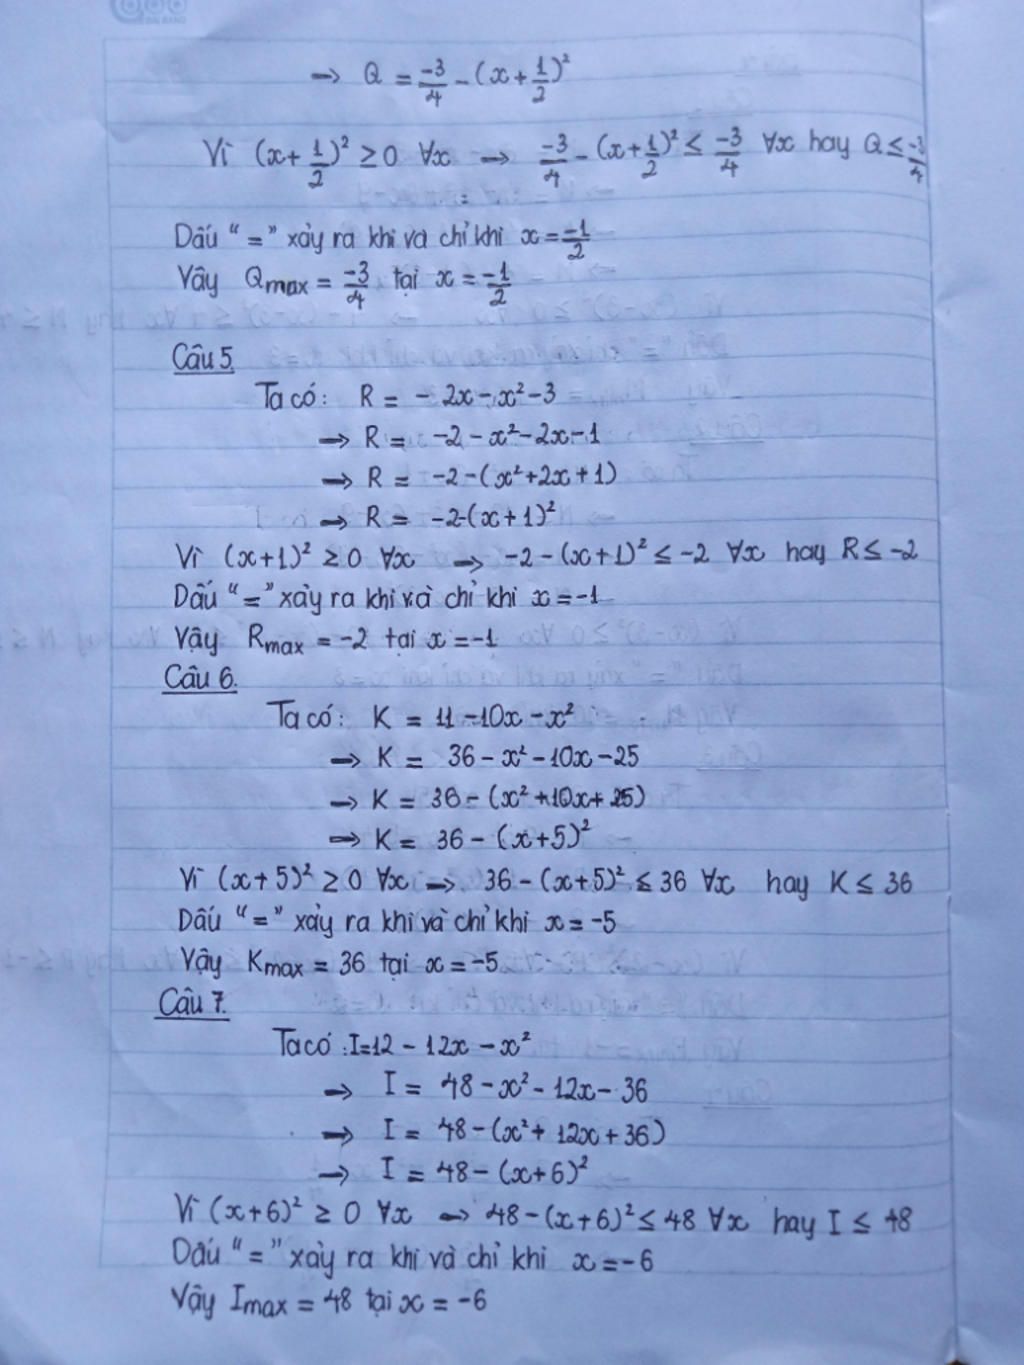 → Q = -3/4 - (x + 1/2)²
Vì (x + 1/2)² ≥ 0 ∀x → -3/4 - (x + 1/2)² ≤ -3/4 ∀x hay Q ≤ -3/4
Dấu “=” xảy ra khi và chỉ khi x = -1/2
Vậy Qmax = -3/4 tại x = -1/2
Câu 5.
Ta có: R = - 2x - x² - 3
→ R = -2 - x² - 2x - 1
→ R = -2 - (x² + 2x + 1)
→ R = -2 - (x + 1)²
Vì (x+1)² ≥ 0 ∀x → -2 - (x+1)² ≤ -2 ∀x hay R ≤ -2
Dấu “=” xảy ra khi và chỉ khi x = -1
Vậy Rmax = -2 tại x = -1
Câu 6.
Ta có: K = 11 - 10x - x²
→ K = 36 - x² - 10x - 25
→ K = 36 - (x² + 10x + 25)
→ K = 36 - (x+5)²
Vì (x+5)² ≥ 0 ∀x → 36 - (x+5)² ≤ 36 ∀x hay K ≤ 36
Dấu “=” xảy ra khi và chỉ khi x = -5
Vậy Kmax = 36 tại x = -5
Câu 7.
Ta có: I = 12 - 12x - x²
→ I = 48 - x² - 12x - 36
→ I = 48 - (x² + 12x + 36)
→ I = 48 - (x+6)²
Vì (x+6)² ≥ 0 ∀x → 48 - (x+6)² ≤ 48 ∀x hay I ≤ 48
Dấu “=” xảy ra khi và chỉ khi x = -6
Vậy Imax = 48 tại x = -6